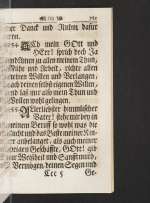 ner Danck und Ruhm dafür
ren.
Ach mein GOtt und
HErr! sprich doch Ja
und Amen zu allen meinem Thun,
Mühe und Arbeit, richte allen
meinen Willen und Verlangen,
nach deinen selbst eigenen Willen,
und laß mir also mein Thun und
Wollen wohl gelingen.
Allerliebster himmlischer
Vater! stehe mir bey in
meinem Beruff so wohl was die
und das Beste meiner
anbelanget, als auch meiner
Geschäffte, GOtt! gib
mir Weißheit und Sanfftmuth,
Vermögen, deinen Segen und
Ccc 5 Ge-